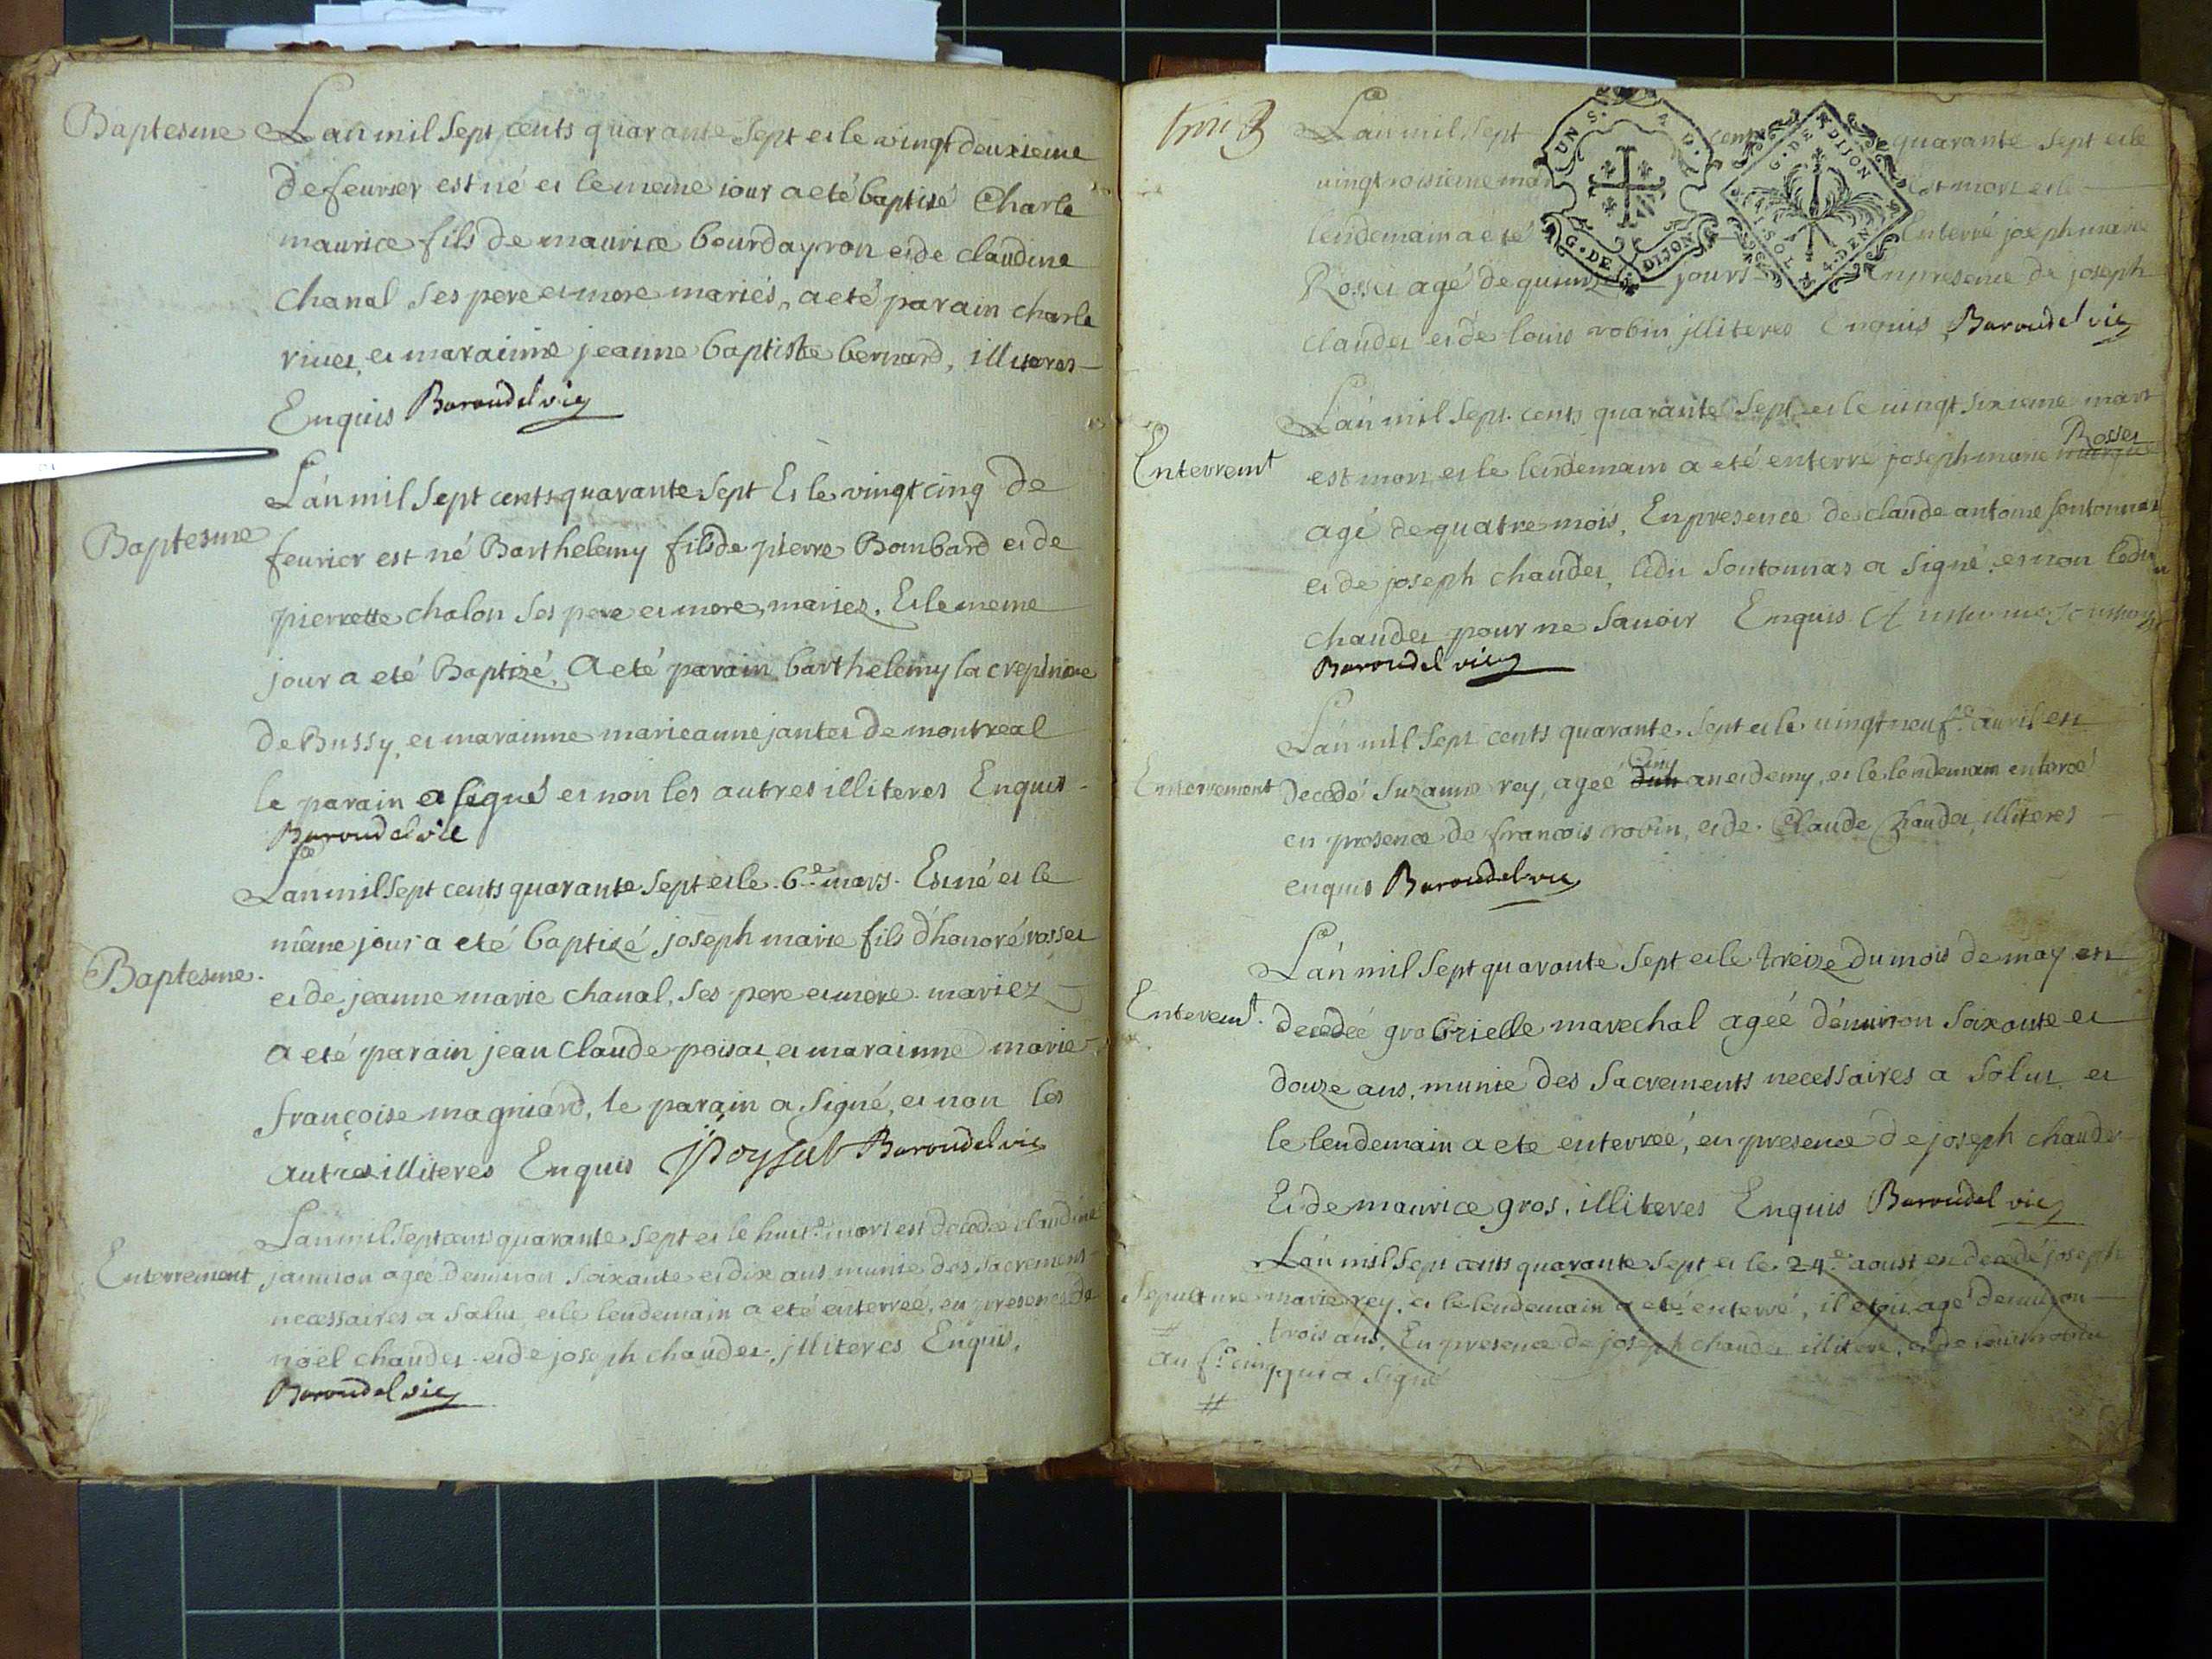 Baptesme
L'an mil Sept cents quarante Sept et le vingt deuxieme
de feurier est né et le meme iour a eté baptisé Charle
maurice fils de maurice bourdayron et de claudine
chanal Ses pere et mere mariés, a eté parain charle
riuet, et marainne jeanne baptiste bernard, illiteres
Enquis Baroudel vic
Baptesme
L'an mil Sept cents quarante Sept Et le vingt cinq de
feurier est né Barthelemy fils de pierre Bombard et de
pierrette chalon Ses pere et mere, mariez. Et le meme
jour a eté Baptizé. A eté parain barthelemy la crepiniere
de Bussy, et marainne marieanne jantet de montreal
le parain a signé et non les autres illiteres Enquis
Baroudel vic
Baptesme.
L'an mil Sept cents quarante Sept et le 6e mars. Est né et le
même jour a eté baptizé, joseph marie fils d'honoré rosset
et de jeanne marie chanal, Ses pere et mere mariez
a eté parain jean claude poisat, et marainne marie
françoise magniard, le parain a Signé, et non les
autres illiteres Enquis JPoysat Baroudel vic
Enterrement
L'an mil Sept cents quarante Sept et le huite mars est decedée claudine
jannion ageé denuiron Soixante et dix ans munie des Sacremens
necessaires a Salut et le lendemain a eté enterreé, en presence de
noël chaudet et de joseph chaudet, jlliteres Enquis.
Baroudel vic
trois 3
L'an mil Sept cents quarante Sept et le
vingtroisieme mars est mort et le
lendemain a eté Enterré joseph marie
Rosset agé de quinze jours Enpresence de joseph
claudet et de louis robin jlliteres Enquis Baroudel vic
UN S. A D.
G. DE DIJON
G. DE DIJON
SOL
4. DEN
Enterremt
L'an mil Sept cents quarante Sept, et le uingt Sixieme mars
est mort et le lendemain a eté enterré joseph marie Rosset
agé de quatre mois, Enpresence de claude antoine sontonnas
et de joseph chaudet, ledit Sontonnas a Signé, et non ledit
chaudet pour ne Sauoir Enquis
Baroudel vic
Enterrement
L'an mil Sept cents quarante Sept et le uingt neufe auril est
cinq
decedé Suzanne rey, ageé d'un an et demy, et le lendemain entereé
en presence de francois robin, et de Claude Chaudet, illiteres
enquis Baroudel vic
Enteremt.
L'an mil Sept quarante Sept et le treize du mois de may est
decedeé grabrielle marechal ageé d'enuiron Soixante et
douze ans, munie des Sacrements necessaires a Salut et
le lendemain a ete enterreé, en presence de joseph chaudet
Et de maurice gros, illiteres Enquis Baroudel vic
Sepulture
#
au f.o cinq
#
L'an mil Sept cents quarante Sept et le 24e aoust est decedé joseph
marie rey, et le lendemain a eté enterré, il etoit agé denuiron
trois ans, En presence de joseph chaudet illitere, et de
qui a Signé